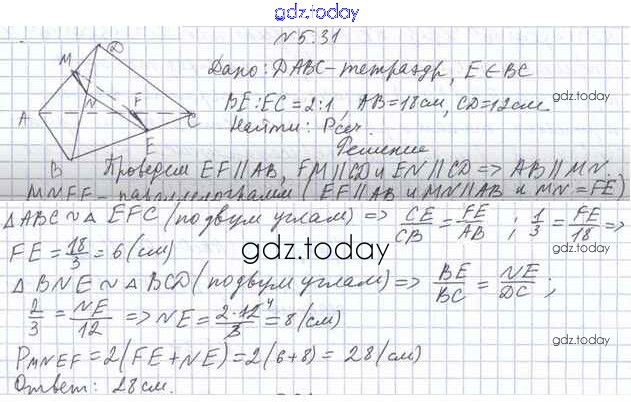 gdz.today
№5.31
D
M
N
F
A
C
E
B
Дано: DABC - тетраэдр, E∈BC
BE:EC = 2:1, AB=18см, CD=12см.
gdz.today
Найти: Pсеч.
Решение
Проведем EF||AB, FM||CD и EN||CD => AB||MN
MNEF - параллелограмм (EF||AB и MN||AB и MN=FE)
△ABC ~ △EFC (по двум углам) => CE/CB = FE/AB ; 1/3 = FE/18 =>
FE = 18/3 = 6 (см)
gdz.today
gdz.today
△BNE ~ △BCD (по двум углам) => BE/BC = NE/DC ;
2/3 = NE/12 => NE = 2·12⁴/3 = 8 (см)
gdz.today
PMNEF = 2(FE+NE) = 2(6+8) = 28 (см)
Ответ: 28см.
gdz.today